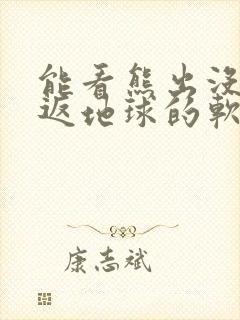 能看熊出没
返地球的軟
康志斌